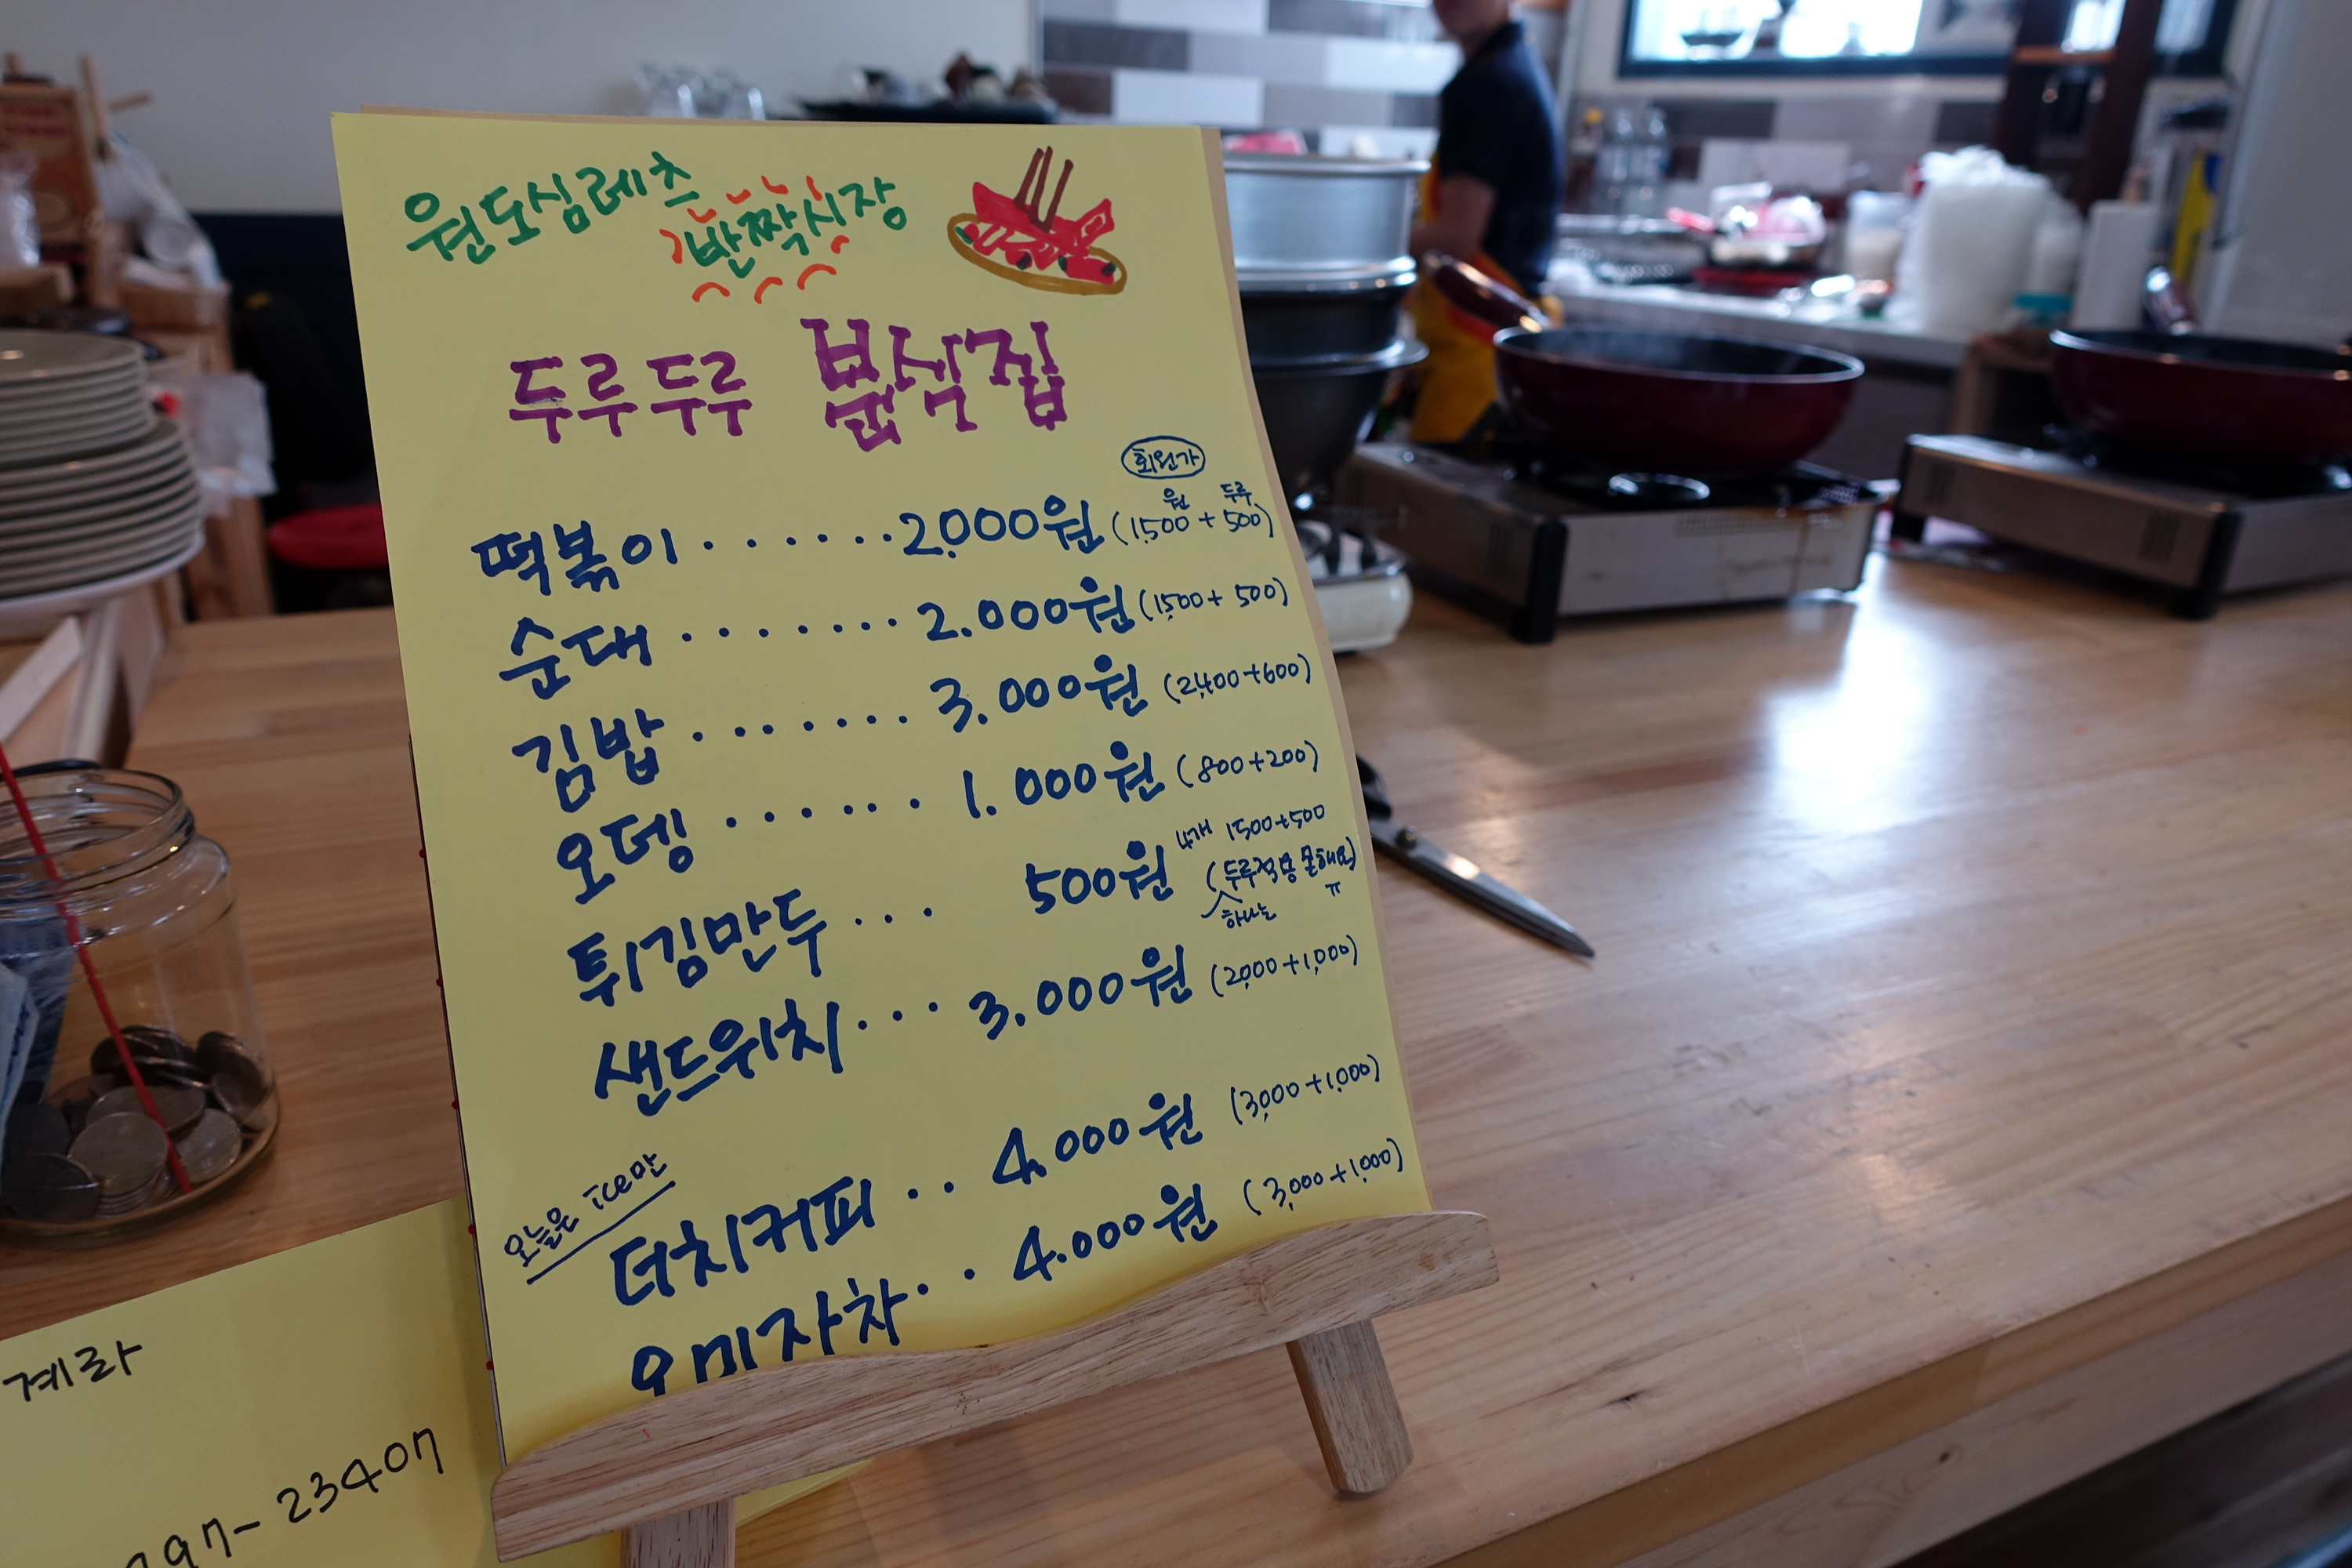 원도심레츠
반짝시장
두루두루 분식집
회원가
원 두루
떡볶이 · · · · · · 2,000원 (1,500 + 500)
순대 · · · · · · · 2.000원 (1,500 + 500)
김밥 · · · · · · · 3.000원 (2,400+600)
오뎅 · · · · · · 1.000원 (800+200)
4개 1500+500
튀김만두 · · · 500원 (두루적용 못해요)
하나는 ㅠ
샌드위치 · · · 3.000원 (2,000+1,000)
오늘은 ice만
더치커피 · · 4.000원 (3,000+1,000)
오미자차 · · 4.000원 (3,000+1,000)
계좌
97-23407